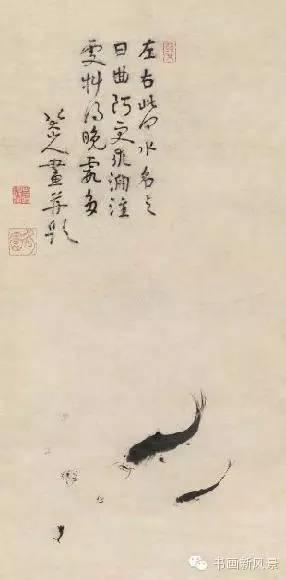 左右此何水名之
曰曲阿更求淵注
處料得晚霞多
八大山人畫并題
书画新风景